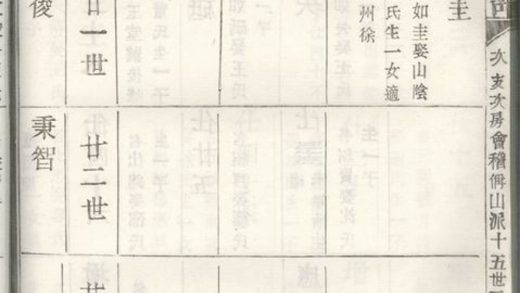 次支次房會稽偁山派十五世
圭
如圭娶山陰
氏生一女適
州徐
廿一世
俊
廿二世
秉智